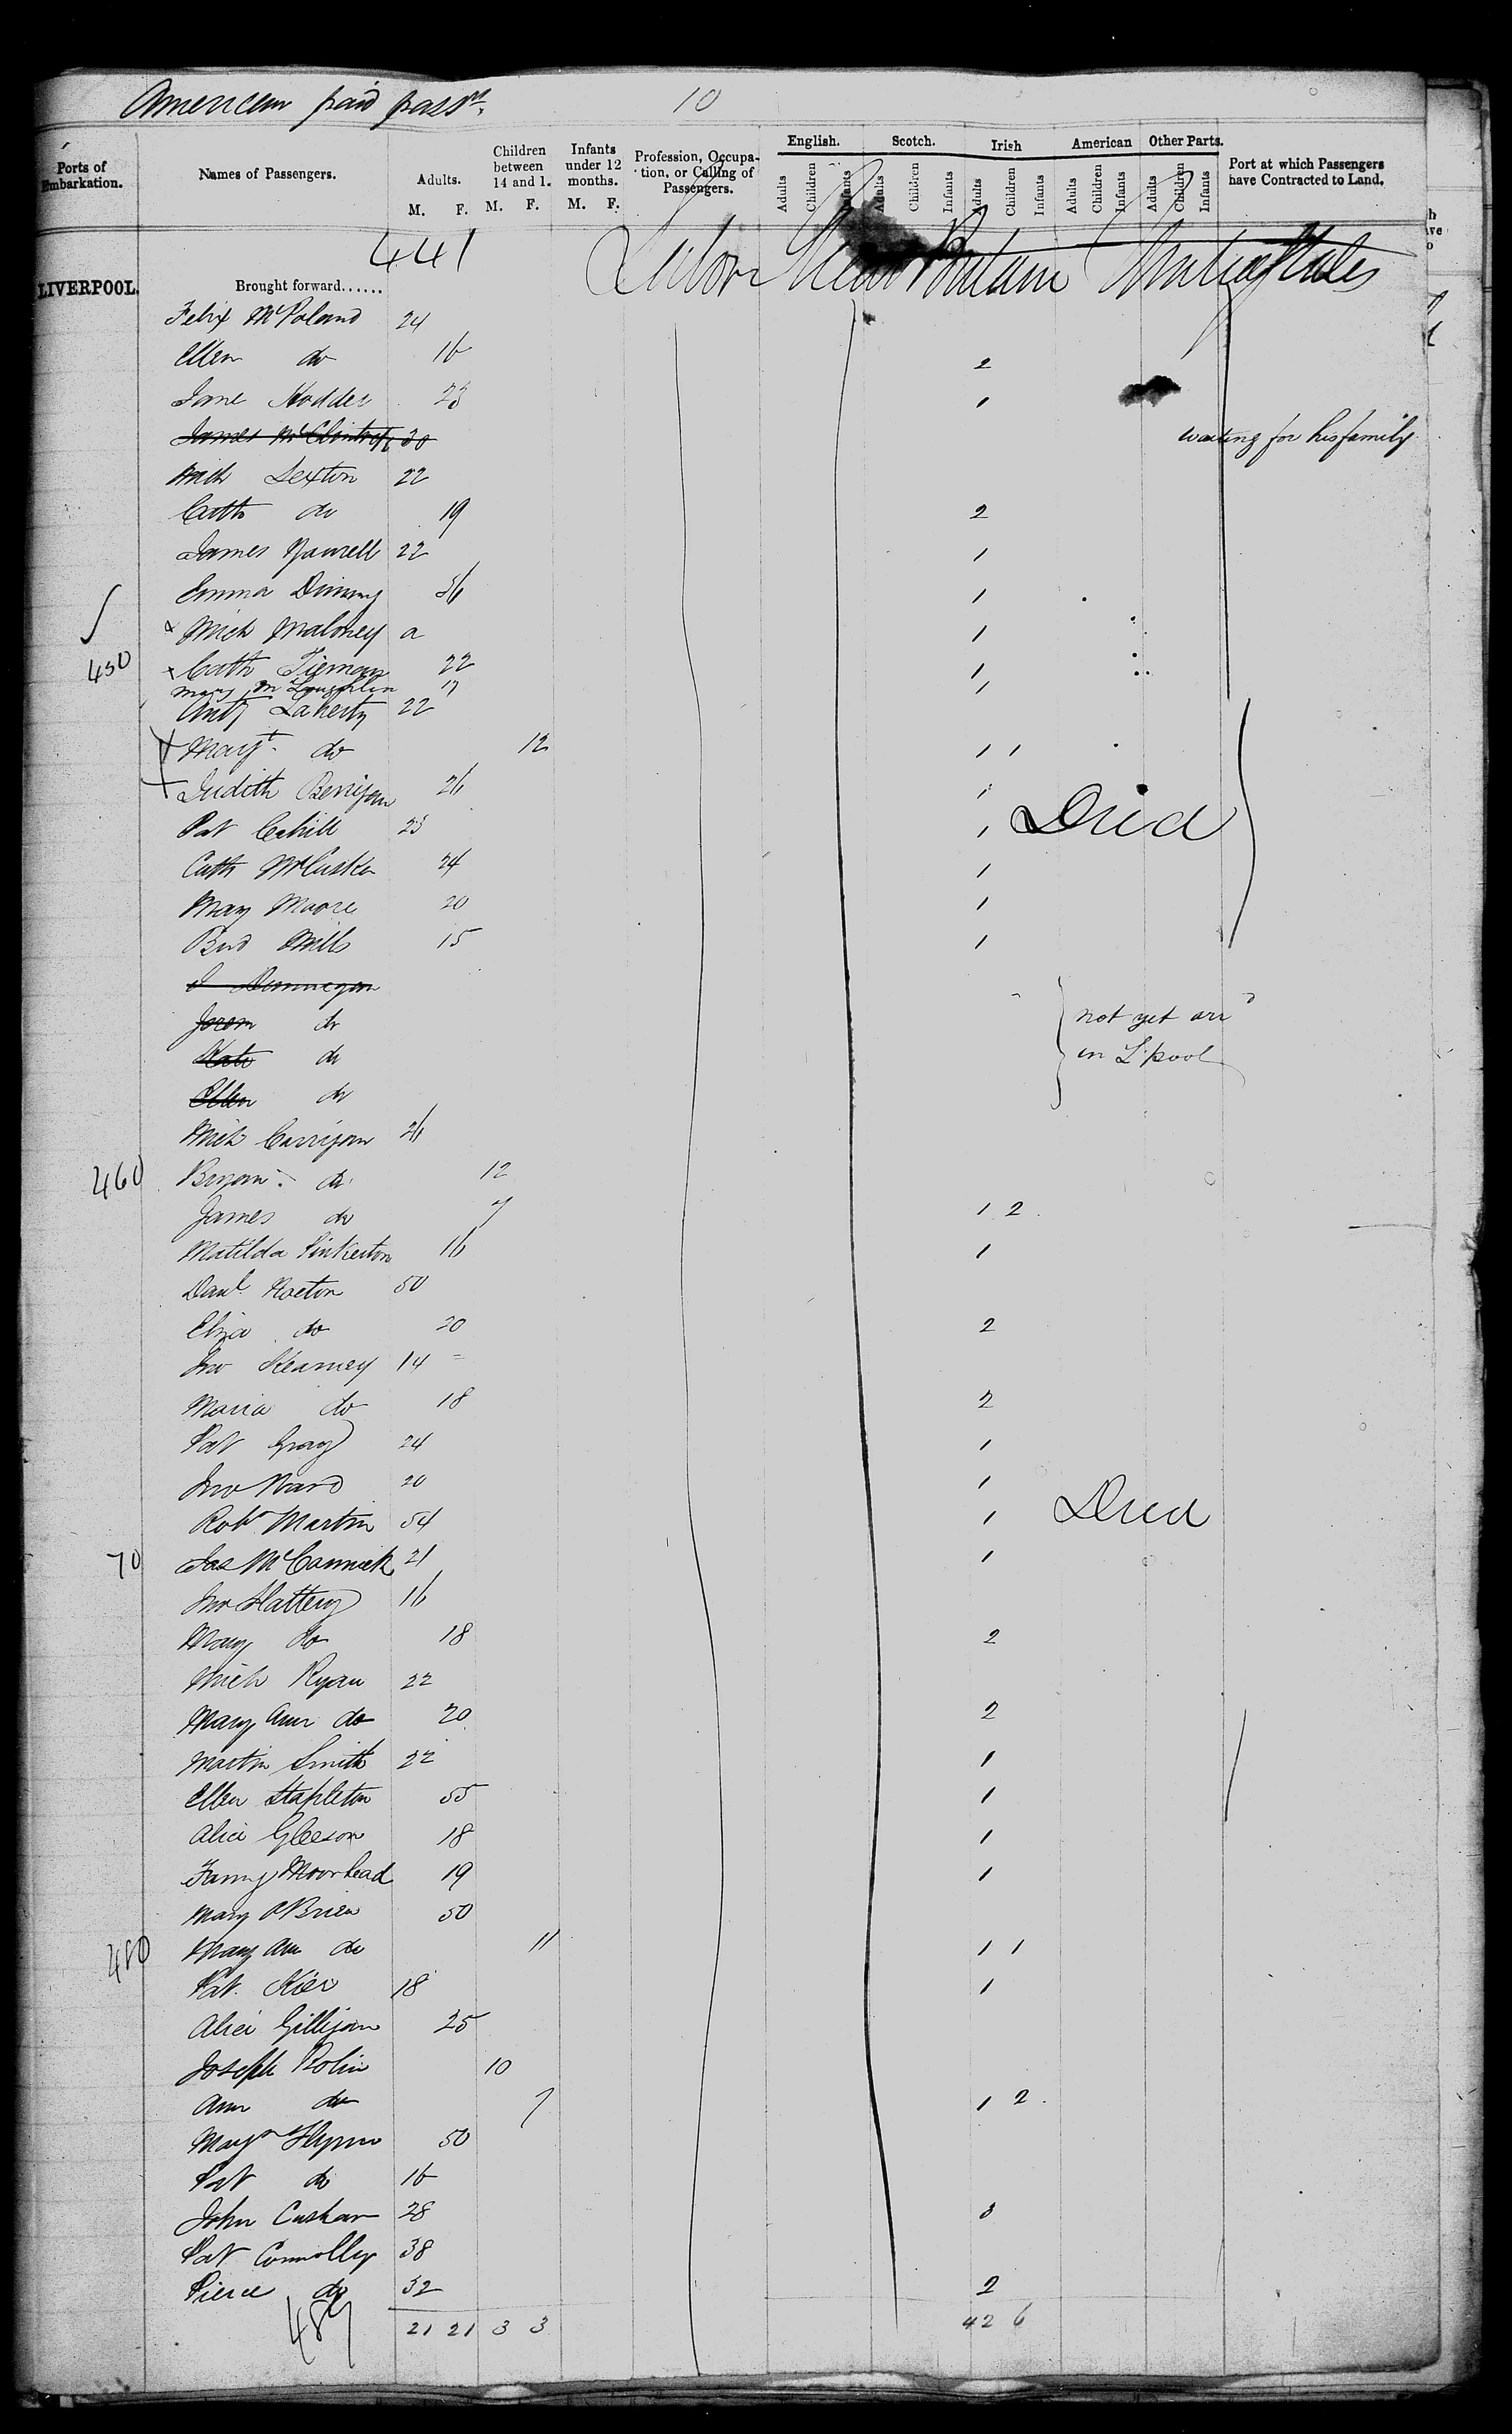 American paid passrs. 10
Ports of Embarkation. Names of Passengers. Adults. M. F. Children between 14 and 1. M. F. Infants under 12 months. M. F. Profession, Occupation, or Calling of Passengers. English. Adults Children Infants Scotch. Adults Children Infants Irish Adults Children Infants American Adults Children Infants Other Parts. Adults Children Infants Port at which Passengers have Contracted to Land.
441
LIVERPOOL. Brought forward...... Labor Great Britain United States
Felix McPoland 24
Ellen do 16 2
Jane Hodder 23 1
James 30 waiting for his family
Mich Sexton 22
Cath do 19 2
James 22 1
Emma 36 1
x Mich Maloney a 1
450 x Cath Tiernan 22 1
Mary McLoughlin 17 1
Anty Laherty 22
Margt. do 12 1 1
Judith Berrigan 26 1
Pat Cahill 23 1 Died
Cath McCusker 24 1
Mary Moore 20 1
Brid Mills 15 1
do not yet arrd
do in L'pool
Ellen do
Mich Carrigan 26
460 Bryan do 12
James do 7 1 2
Matilda Pinkerton 16 1
Danl. 50
Eliza do 20 2
Jno Kearney 14
Maria do 18 2
Pat Gray 24 1
Jno Ward 20 1
Robt Martin 54 1 Died
70 Jas McCormick 21 1
Jno Slattery 16
Mary do 18 2
Mich Ryan 22
Mary Ann do 20 2
Martin Smith 22 1
Ellen Stapleton 55 1
Alice Gleeson 18 1
Fanny Moorhead 19 1
Mary O'Brien 50
480 Mary Ann do 11 1 1
Pat. Kier 18 1
Alice Gilligan 25
Joseph Rolin 10
Ann do 7 1 2
Mary Flynn 50
Pat do 16
John 28 3
Pat Connolly 38
Pierce do 32 2
489 21 21 3 3 42 6